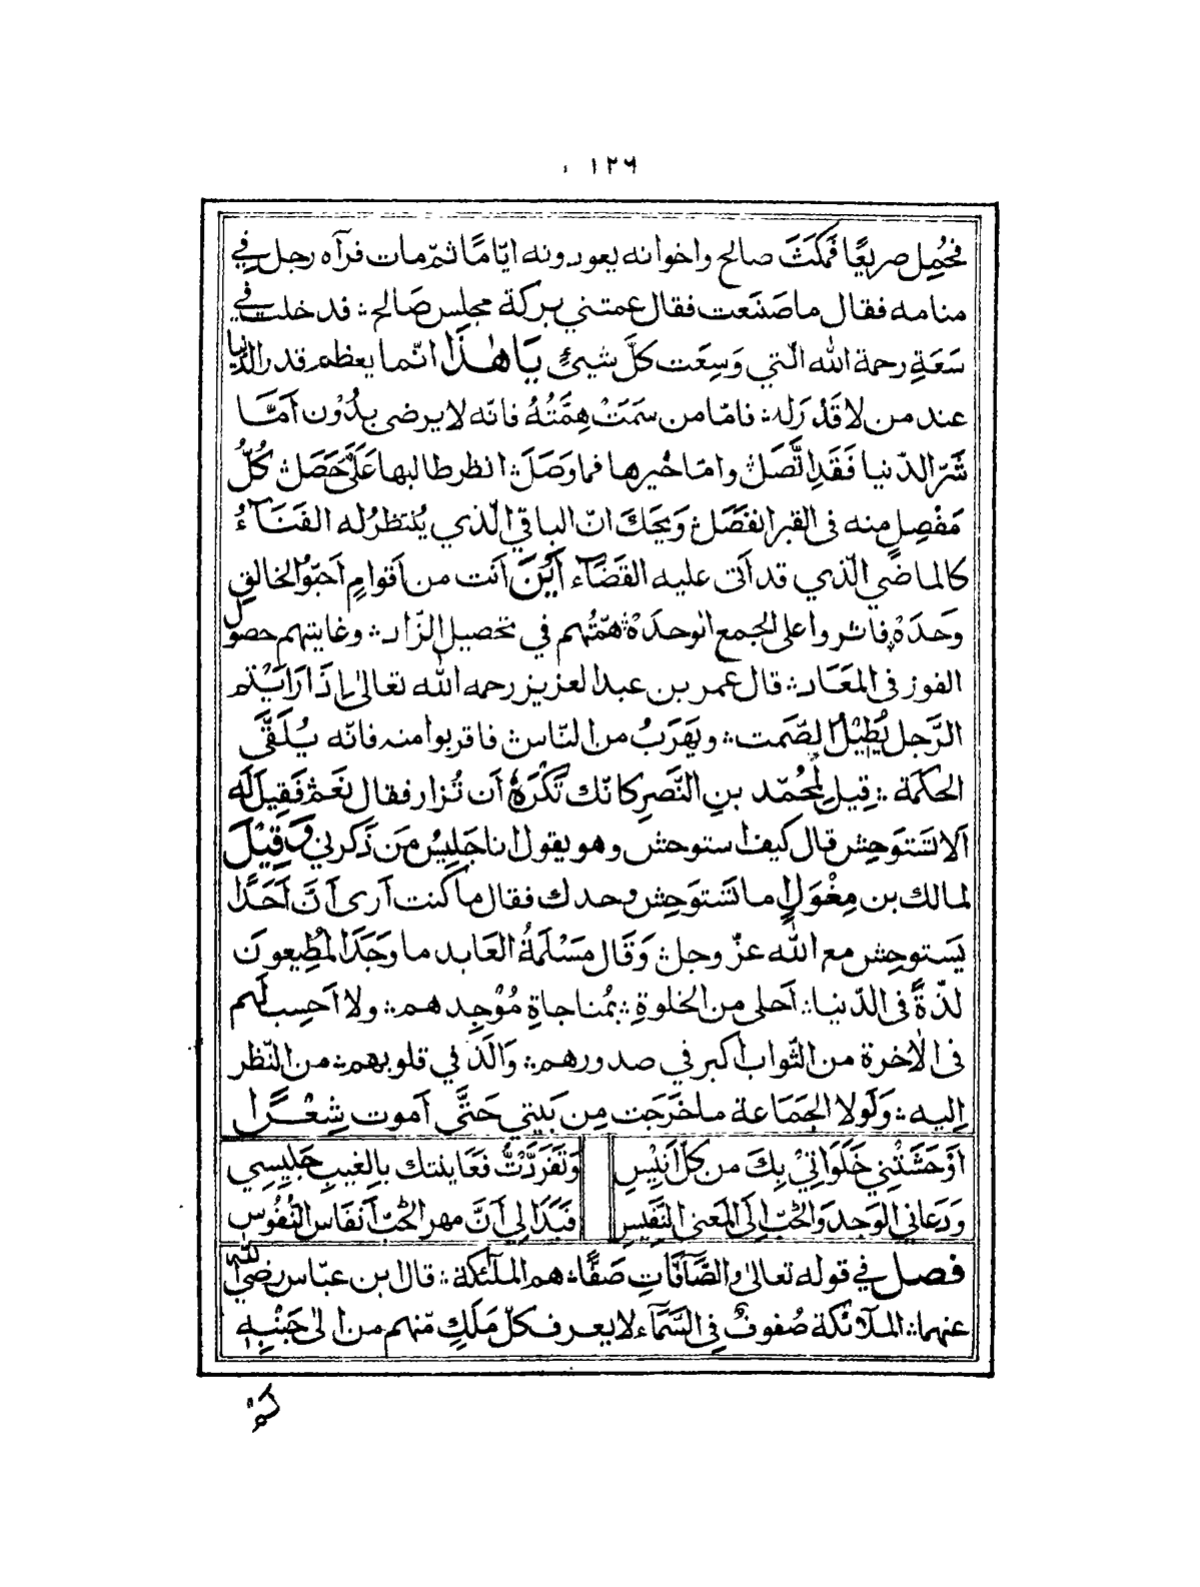 ١٢٦
فحُمِل صريعًا فمكَثَ صالح واخوانه يعودونه ايّامًا ثمّ مات فرآه رجل في
منامه فقال ما صَنَعت فقال عمتني بركة مجلس صَالح؞ قد خلت في
سَعَةِ رحمة الله الّتي وَسِعَت كلَّ شيئٍ يَا هٰذَا انّما يعظم قدر الدّنيا
عند من لا قَدْرَ له؞ فامّا من سَمَتْ هِمَّتُهُ فانّه لا يرضى بدُوْن اَمَّا
شَرّ الدّنيا فَقَدِ اتَّصَل؞ وامّا خيرها فما وَصَلَ؞ انظر طالبها عَلَىَّ حَصَل؞ كُلُّ
مَفْصِلٍ منه فى القبر انفَصَل؞ وَيحَكَ انّ الباقي الّذي يُنتظرُ له الفَنَآءُ
كالماضي الّذي قد اَتى عليه القَضَآء اَيْنَ اَنت من اَقوامٍ اَحَبّوُا الخالق
وحدَهْ؞ فاثروا على الجمع الوحدَهْ؞ همّتُهم في تحصيل الزّاد؞ وغايتهم حصول
الفوز فى المَعَاد؞ قال عمر بن عبد العزيز رحمه الله تعالىٰ اِذَا رَاَيْتم
الرَّجل يُطِيْلُ الصَّمت؞ ويَهرَبُ من النّاس؞ فاقربوا منه فانّه يُلَقَّى
الحكمة؞ قِيل لِمُحُمّد بنِ النَّضرِ كانّك تَكْرَهُ اَن تُزار فقال نَعَمْ فَقِيلَ لَه
اَلا تَستَوحِش قال كيف استوحش وهو يقول انا جَلِيسُ مَن ذَكَرني وَقِيْلَ
لمالك بن مِغْوَلٍ ما تَستَوحِش وحدك فقال ما كنت اَرى اَنَّ اَحَدًا
يَستوحِش مع الله عزّ وجل؞ وَقَال مَسْلَمَةُ العَابد ما وَجَدَ المُطِيعونَ
لذّةً فى الدّنيا؞ اَحلى من الخلوةِ؞ بمُناجاةِ مُوْجِدهم؞ ولا اَحسِب لَهم
فى الاٰخرة من الثّواب اَكبر في صدورهم؞ وَالَذّ في قلوبهم؞ من النّظر
اِليه؞ وَلَولا الجَمَاعة ما خَرَجت مِن بَيتي حَتَّى اَموت شِعْرًا
اَوْحَشَتْنِي خَلَوَاتِيْ بِكَ من كلّ اَنِيْسِ وَتَفَرَّدْتُّ فعَاينتك بالغيبِ جَلِيسِي
وَدَعانِي الوَجد وَالحُبّ اِلَى المَعنى النَّفِيسِ فَبَدَا لِي اَنَّ مهر الحُبّ اَنفَاس النُّفُوسِ
فصل في قوله تعالىٰ والصَّآفَّاتِ صَفًّا؞ هم الملٰئكة؞ قال ابن عبّاس رضي الله
عنهما؞ الملآئكة صُفوفٌ فِى السَّمَآء لا يعرف كلّ مَلَكٍ مّنهم من الىٰ جَنْبِهٖ
لَمْ